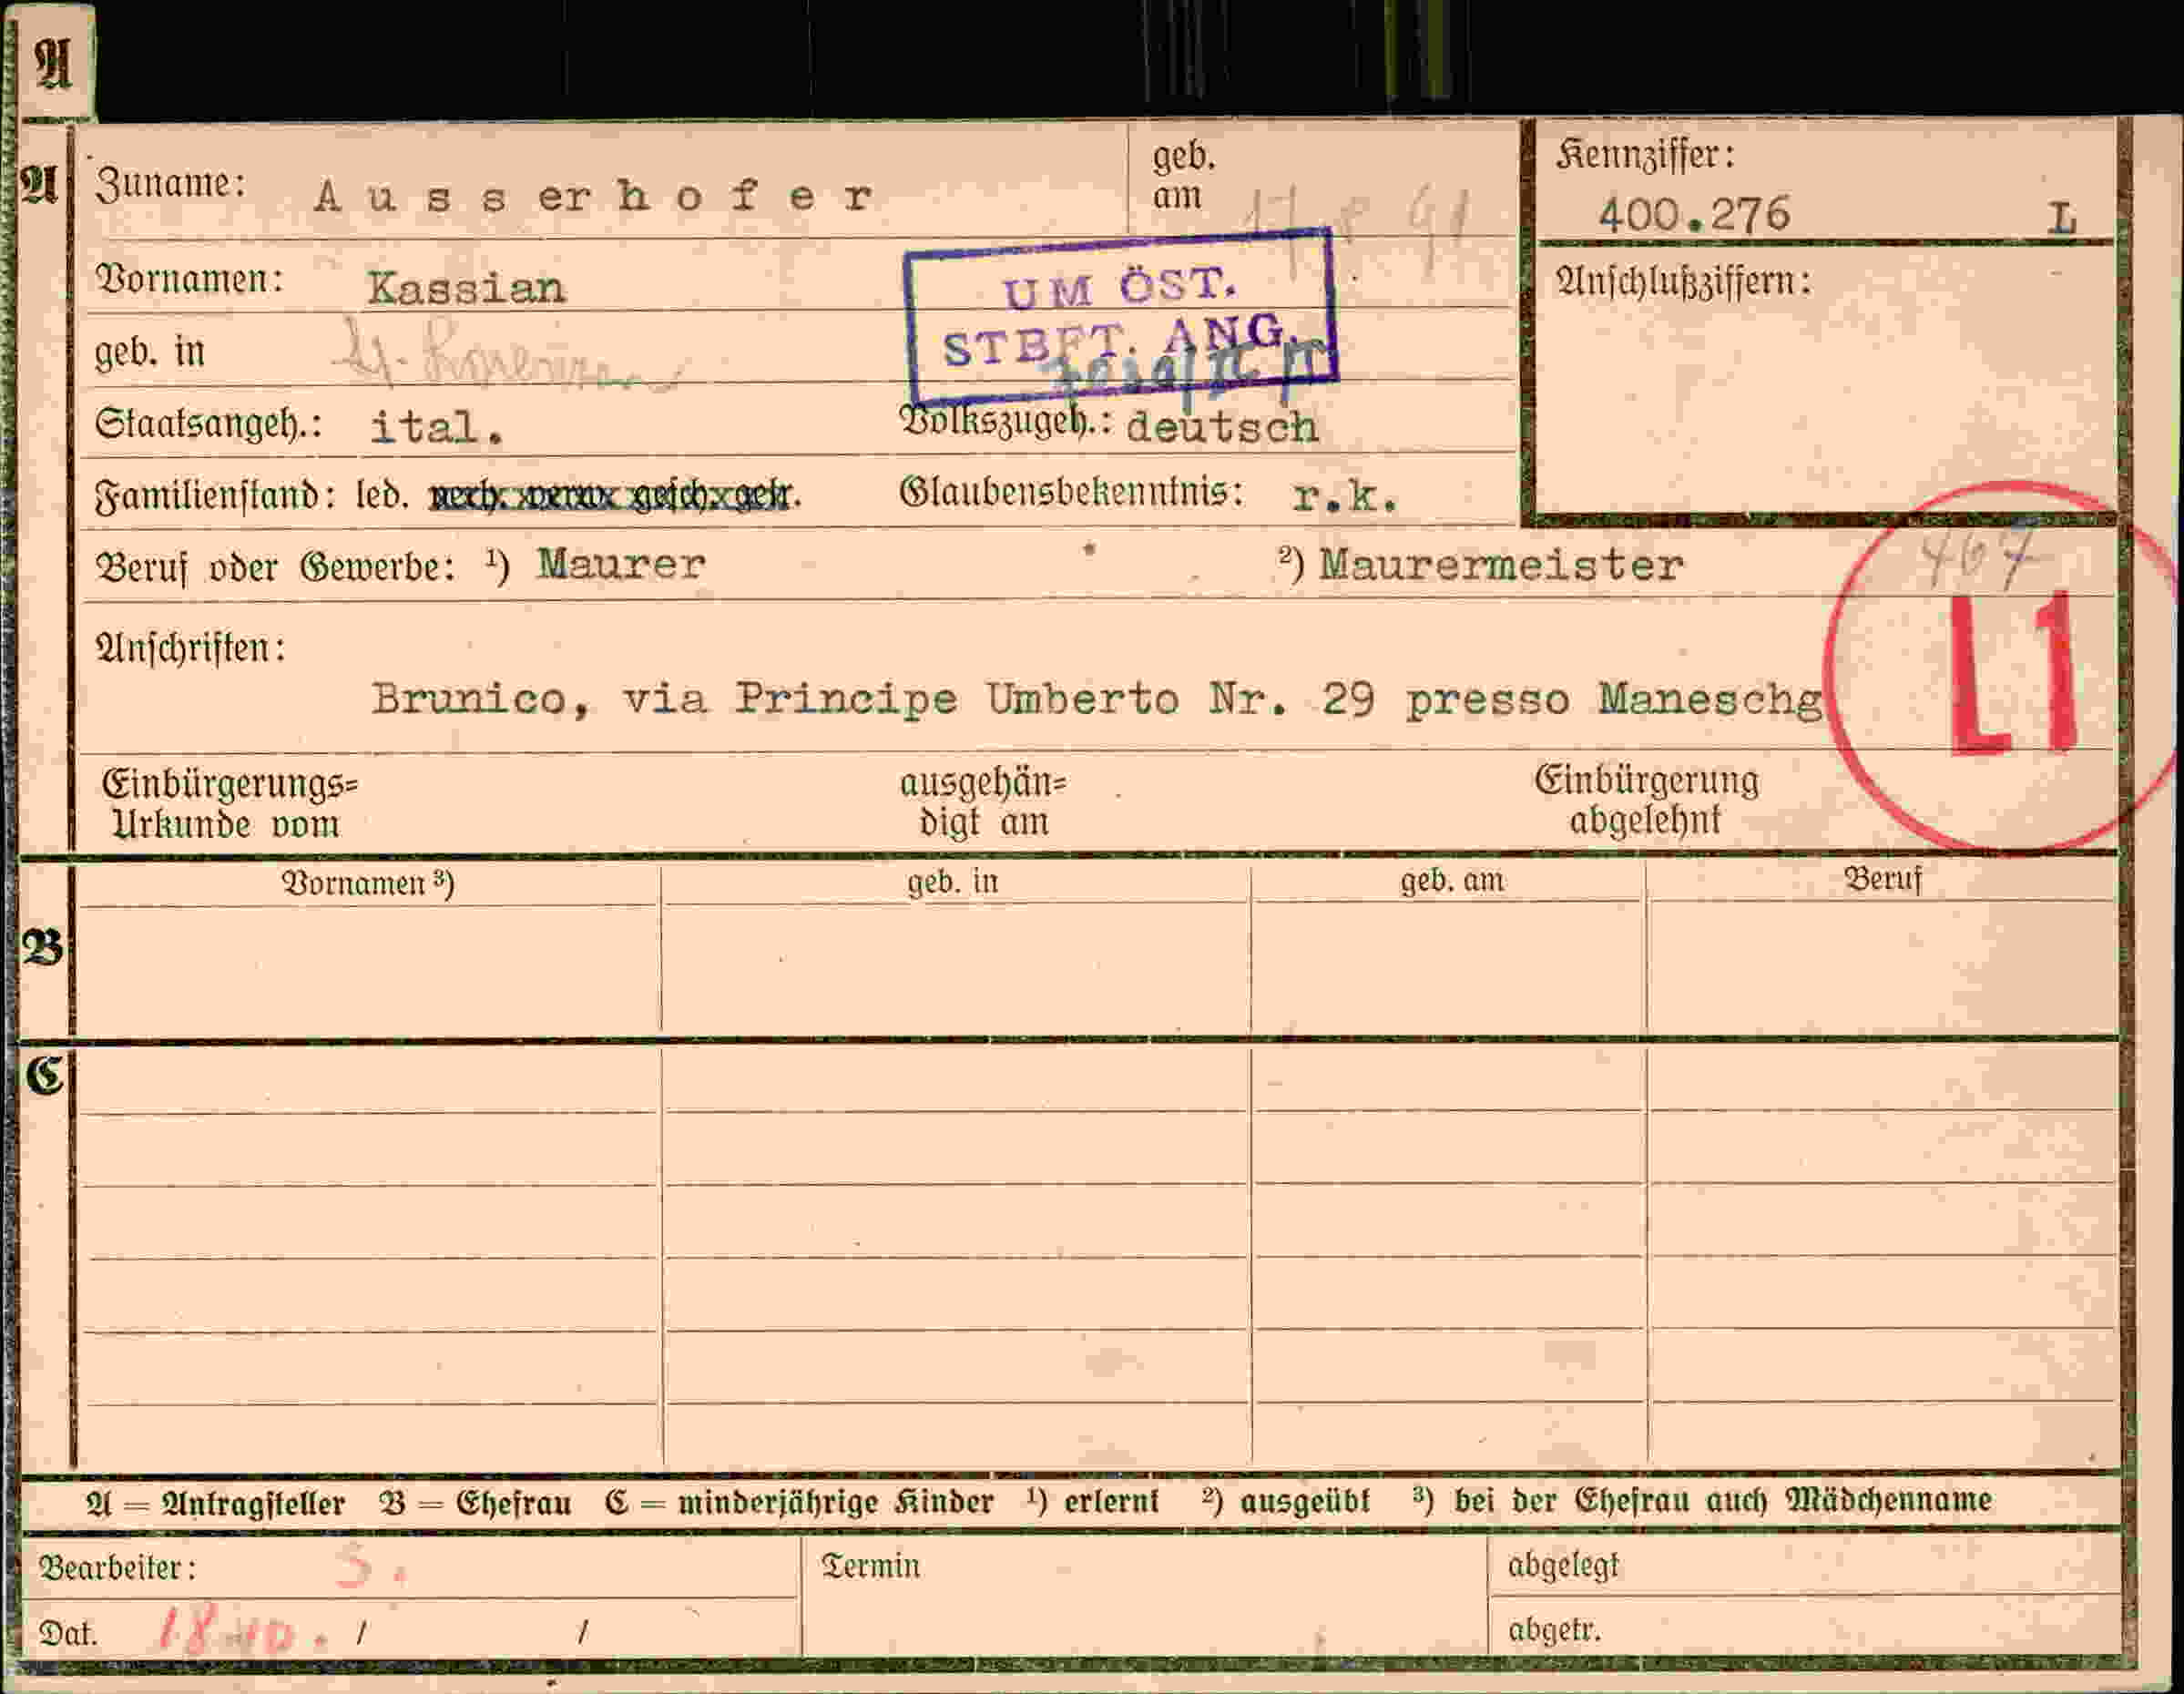 A
A
Zuname: Ausserhofer
geb. am
Kennziffer:
400.276 L
Vornamen: Kassian
UM ÖST.
STBFT. ANG.
Anschlußziffern:
geb. in St. Lorenzen
Staatsangeh.: ital. Volkszugeh.: deutsch
Familienstand: led. verh. verw. gesch. getr. Glaubensbekenntnis: r.k.
467
Beruf oder Gewerbe: ¹) Maurer ²) Maurermeister
L1
Anschriften:
Brunico, via Principe Umberto Nr. 29 presso Maneschg
Einbürgerungs= ausgehän= Einbürgerung
Urkunde vom digt am abgelehnt
Vornamen ³) geb. in geb. am Beruf
B
C
A = Antragsteller B = Ehefrau C = minderjährige Kinder ¹) erlernt ²) ausgeübt ³) bei der Ehefrau auch Mädchenname
Bearbeiter: S. Termin abgelegt
Dat. 18.10. / / abgetr.